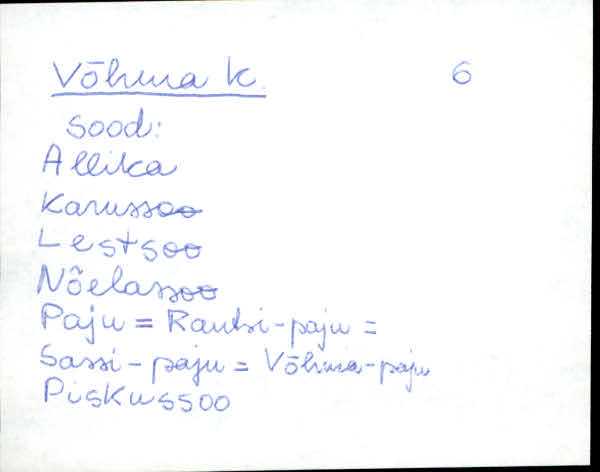 Võhma k. 6
Sood:
Allika
Karussoo
Lestsoo
Nõelassoo
Paju = Rautsi-paju =
Sassi-paju = Võhma-paju
Piskussoo